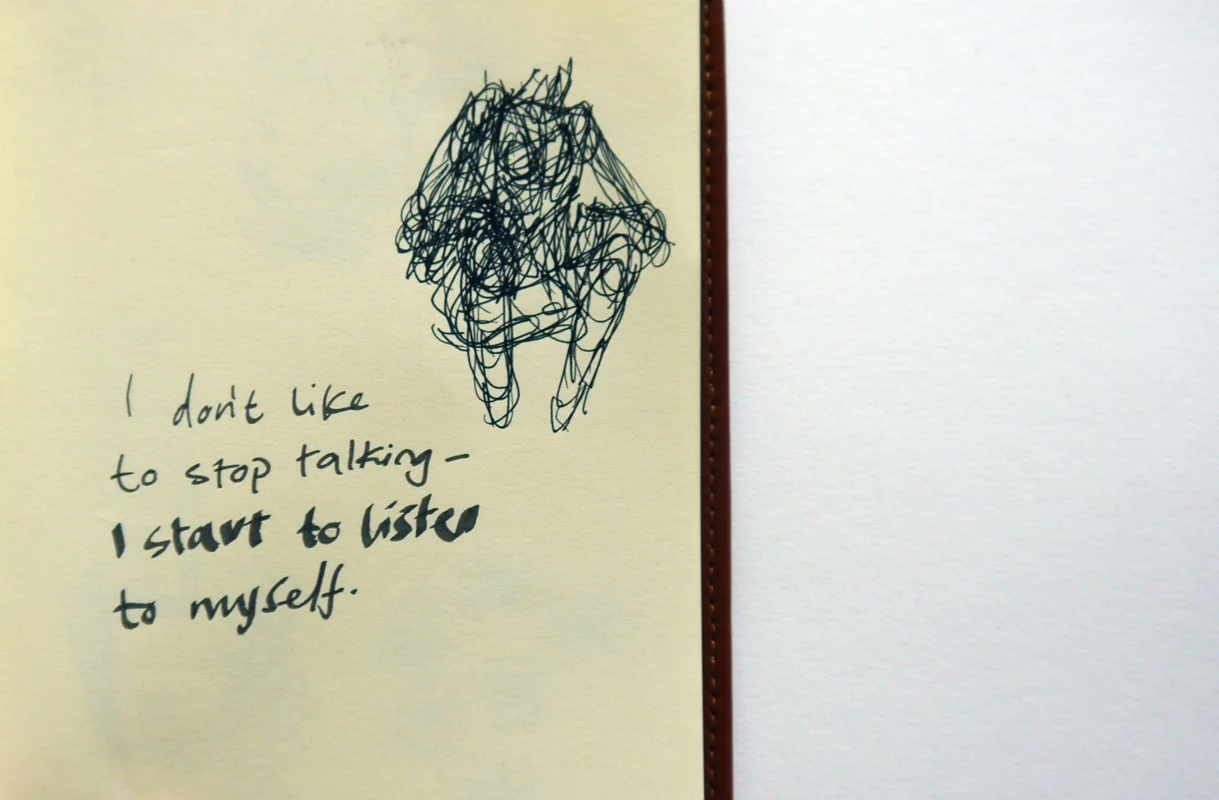 I don't like
to stop talking –
I start to listen
to myself.